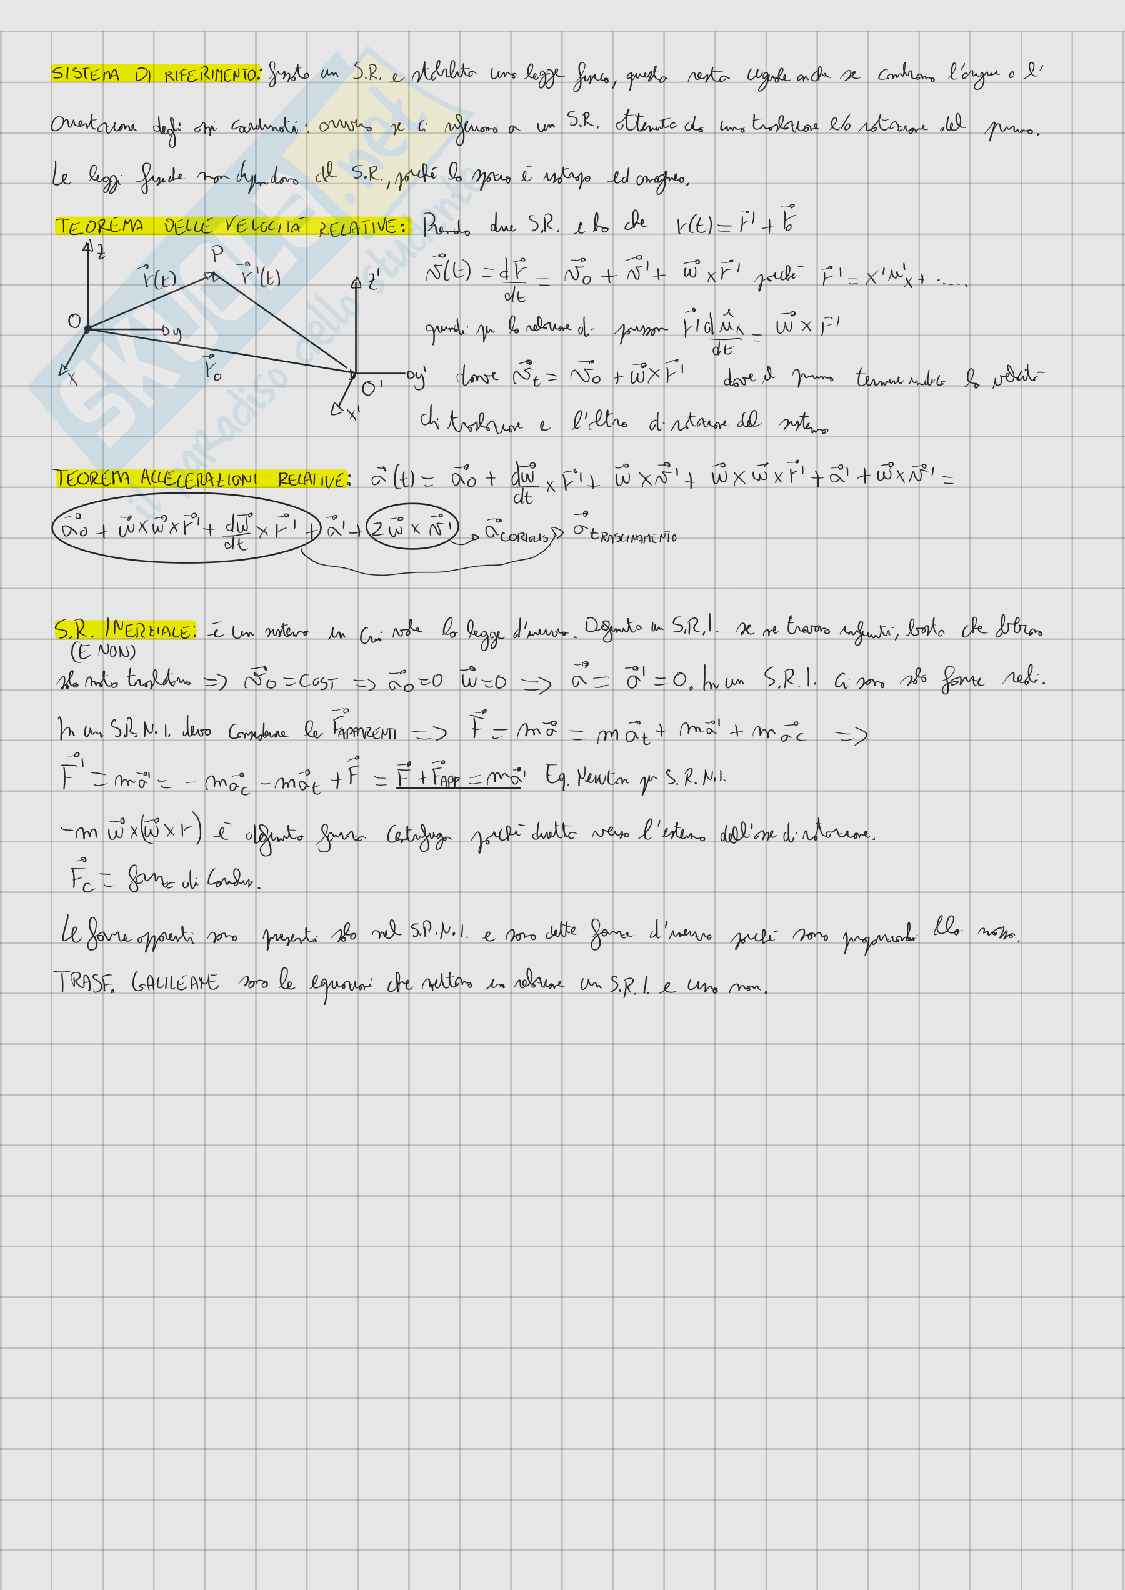 SISTEMA DI RIFERIMENTO: fissato un S.R. e stabilita una legge fisica, questa resta uguale anche se cambiamo l'origine o l'
orientazione degli assi cardinali: ovvero se ci riferiamo a un S.R. ottenuto da una traslazione e/o rotazione del primo.
Le leggi fisiche non dipendono dal S.R., poiché lo spazio è isotropo ed omogeneo.
TEOREMA DELLE VELOCITÀ RELATIVE: Prendo due S.R. e ho che r(t) = r⃗' + r⃗₀
z P r⃗(t) r⃗'(t) z' O y x r⃗₀ O' y' x'
v⃗(t) = dr⃗/dt = v⃗₀ + v⃗' + ω⃗ × r⃗' poiché r⃗' = x'u'ₓ + .....
quindi per la relazione di r⃗' dûₓ/dt = ω⃗ × r⃗'
dove v⃗t = v⃗₀ + ω⃗ × r⃗' dove il primo termine indica la velocità
di traslazione e l'altro di rotazione del sistema
TEOREMA ACCELERAZIONI RELATIVE: a⃗(t) = a⃗₀ + dω⃗/dt × r⃗' + ω⃗ × v⃗' + ω⃗ × ω⃗ × r⃗' + a⃗' + ω⃗ × v⃗' =
a⃗₀ + ω⃗ × ω⃗ × r⃗' + dω⃗/dt × r⃗' + a⃗' + 2ω⃗ × v⃗' → a⃗ CORIOLIS → a⃗ TRASCINAMENTO
S.R. INERZIALE: è un sistema in cui vale la legge d'inerzia. Definito un S.R.I. se ne trovano infiniti, basta che abbiano
(E NON)
solo moto traslatorio => v⃗₀ = COST => a⃗₀ = 0 ω⃗ = 0 => a⃗ = a⃗' = 0. In un S.R.I. ci sono solo forze reali.
In un S.R.N.I. devo considerare le F⃗APPARENTI => F⃗ = ma⃗ = ma⃗t + ma⃗' + ma⃗c =>
F⃗' = ma⃗' = - ma⃗c - ma⃗t + F⃗ = F⃗ + F⃗APP = ma⃗' Eq. Newton per S.R.N.I.
-m ω⃗ × (ω⃗ × r) è definita forza centrifuga poiché diretta verso l'esterno dell'asse di rotazione.
F⃗c = forza di Coriolis.
Le forze apparenti sono presenti solo nel S.R.N.I. e sono dette forze d'inerzia poiché sono proporzionali alla massa.
TRASF. GALILEANE sono le equazioni che mettono in relazione un S.R.I. e uno non.
SKUOLA.net
il paradiso dello studente